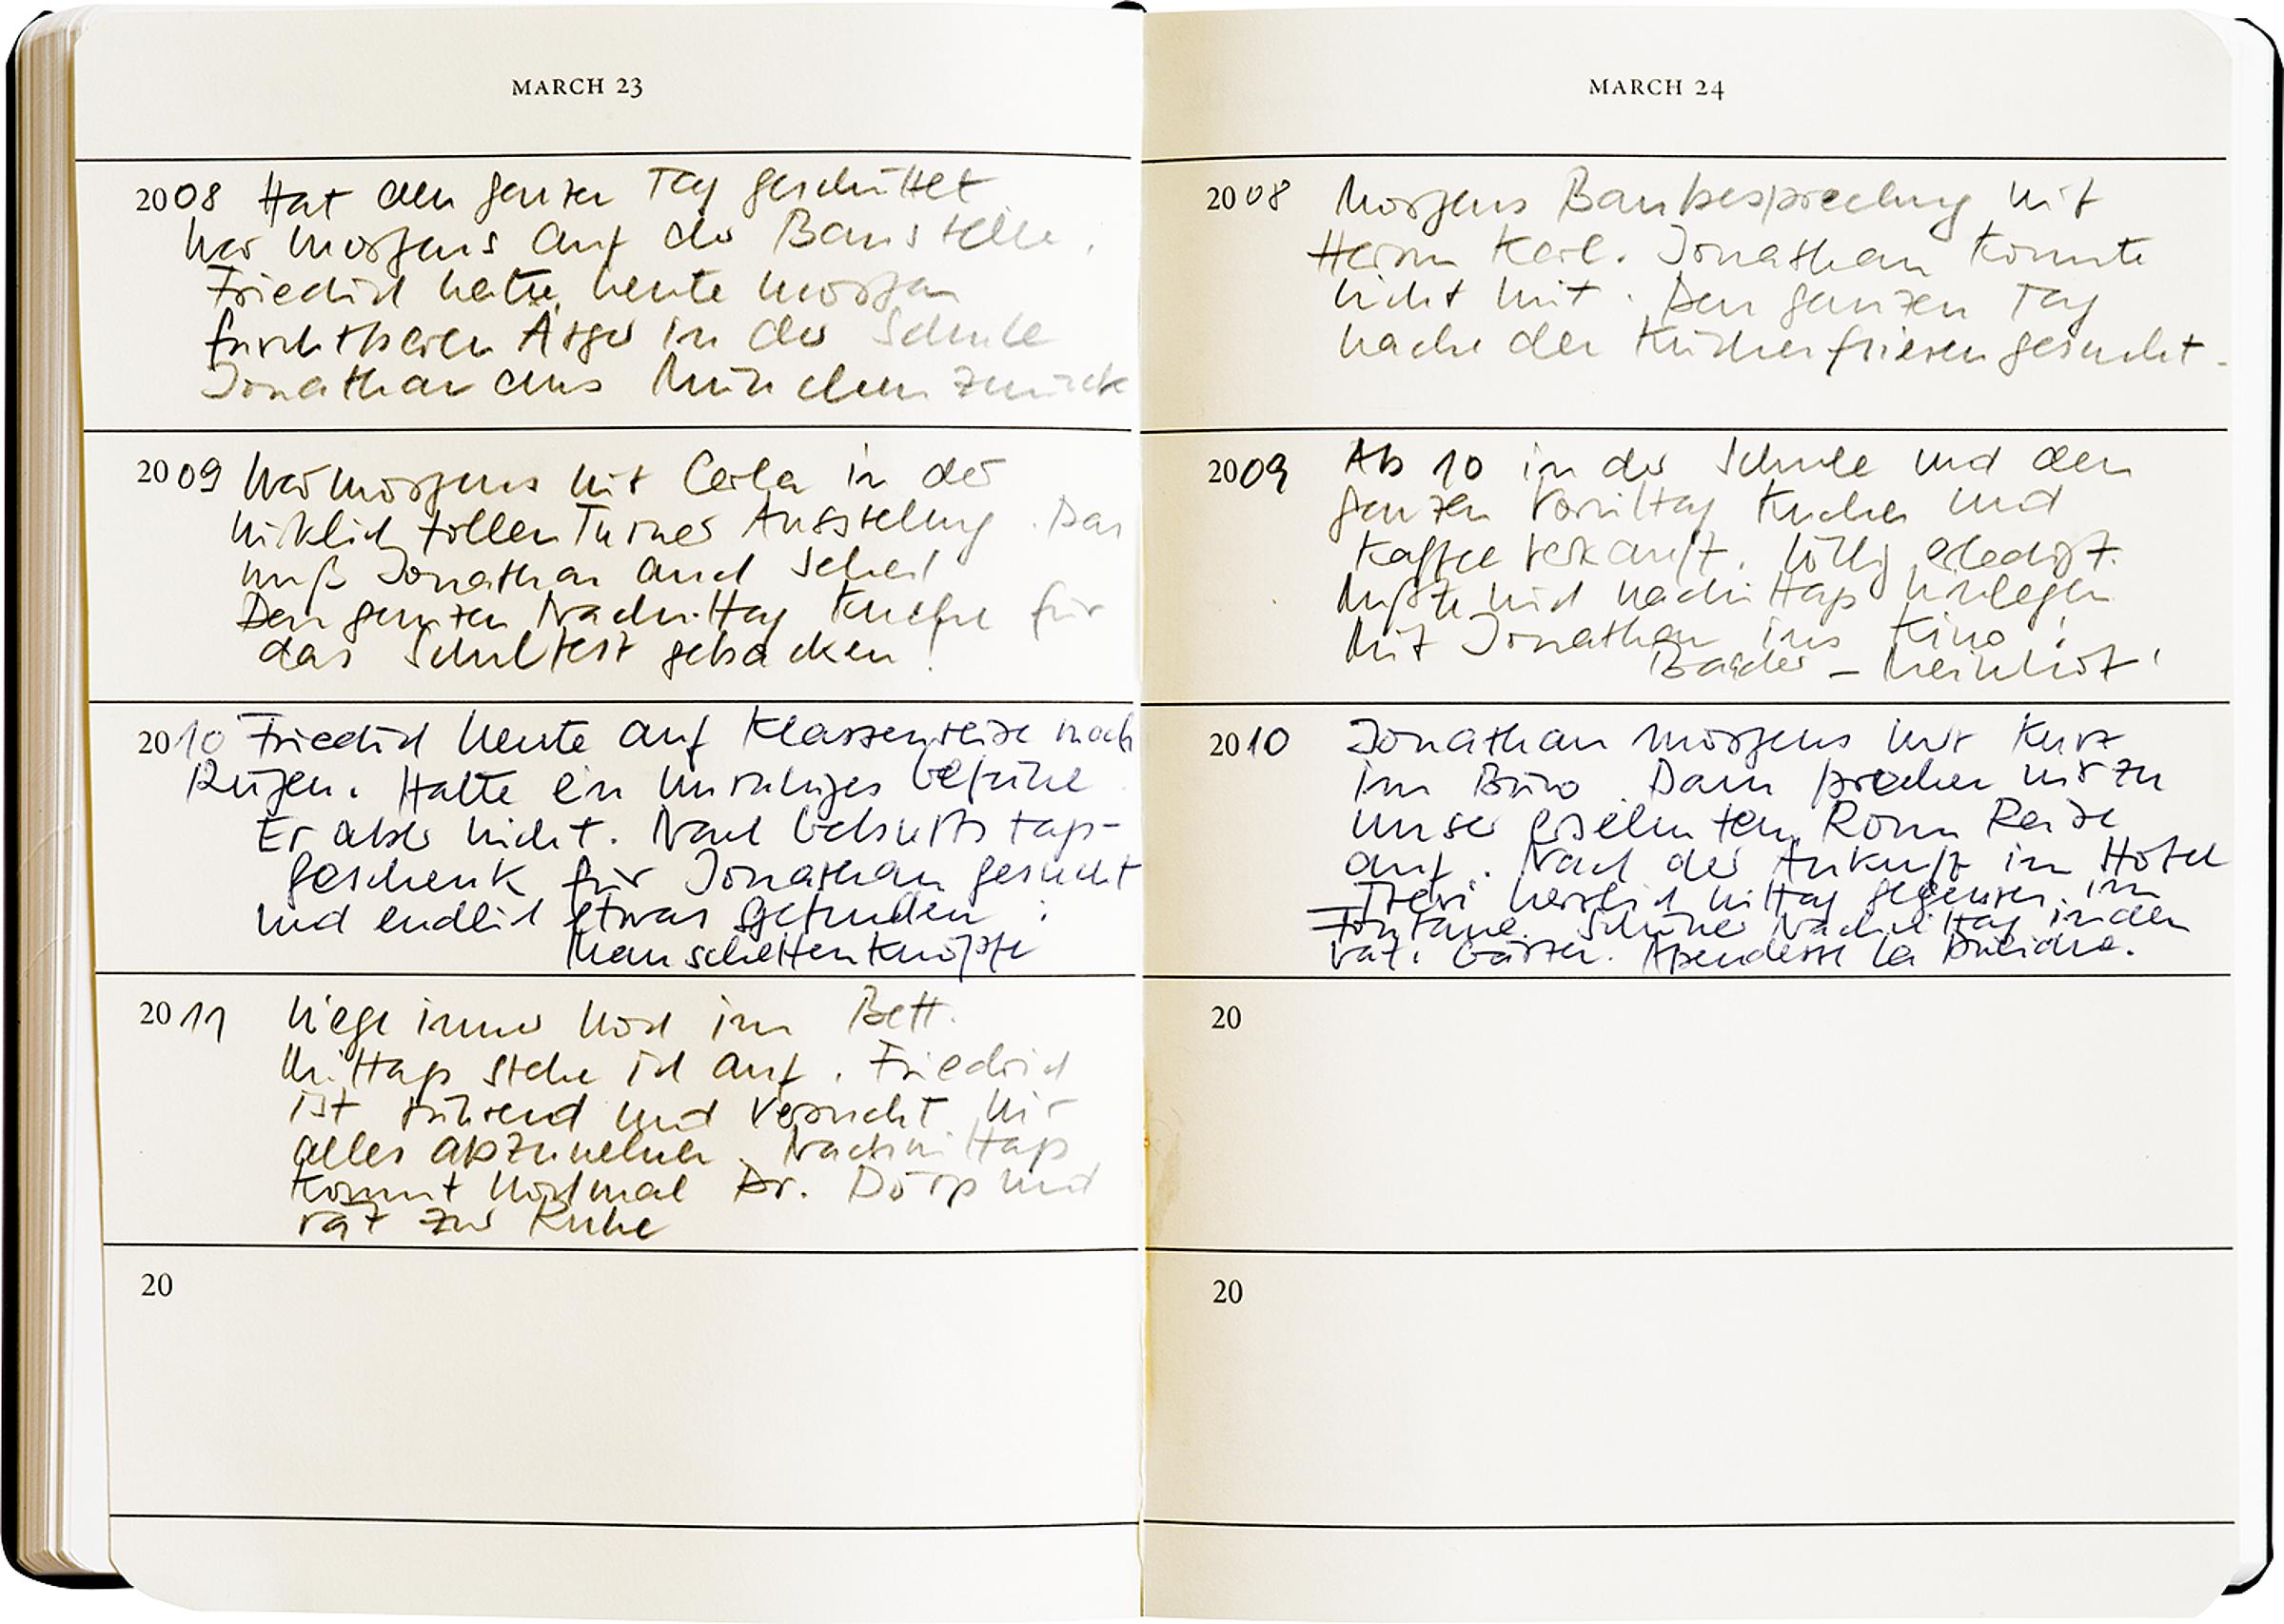 MARCH 23
2008 Hat den ganzen Tag geschüttet
war morgens auf der Baustelle.
Friedrich hatte heute morgen
furchtbaren Ärger in der Schule
Jonathan aus München zurück
2009 War morgens mit Carla in der
wirklich tollen Turner Ausstellung. Das
muß Jonathan auch sehen!
Den ganzen Nachmittag Kuchen für
das Schulfest gebacken!
2010 Friedrich heute auf Klassenreise nach
Rügen. Hatte ein unruhiges Gefühl.
Er aber nicht. Nach Geburtstags-
geschenk für Jonathan gesucht
und endlich etwas gefunden:
Manschettenknöpfe
2011 Liege immer noch im Bett.
Mittags stehe ich auf. Friedrich
ist rührend und versucht mir
alles abzunehmen. Nachmittags
kommt nochmal Dr. Dörp und
rät zur Ruhe
20
MARCH 24
2008 Morgens Baubesprechung mit
Herrn Karl. Jonathan konnte
nicht mit. Den ganzen Tag
nach den Küchenfliesen gesucht.
2009 Ab 10 in der Schule und den
ganzen Vormittag Kuchen und
Kaffee verkauft. Völlig erledigt.
Mußte mich nachmittags hinlegen
Mit Jonathan ins Kino:
Baader - Meinhof!
2010 Jonathan morgens nur kurz
im Büro. Dann brechen wir zu
unser ersehnten Rom Reise
auf. Nach der Ankunft im Hotel
Trevi herrlich Mittag gegessen im
Fontane. Schöner Nachmittag in den
Vat. Gärten. Abendessen La
20
20